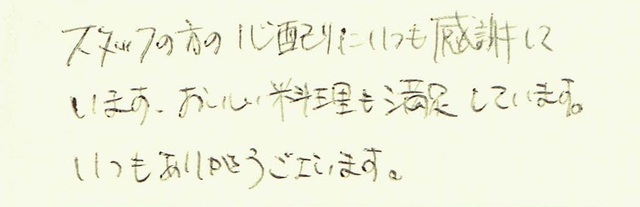 スタッフの方の心配りにいつも感謝して
います。おいしい料理も満足しています。
いつもありがとうございます。